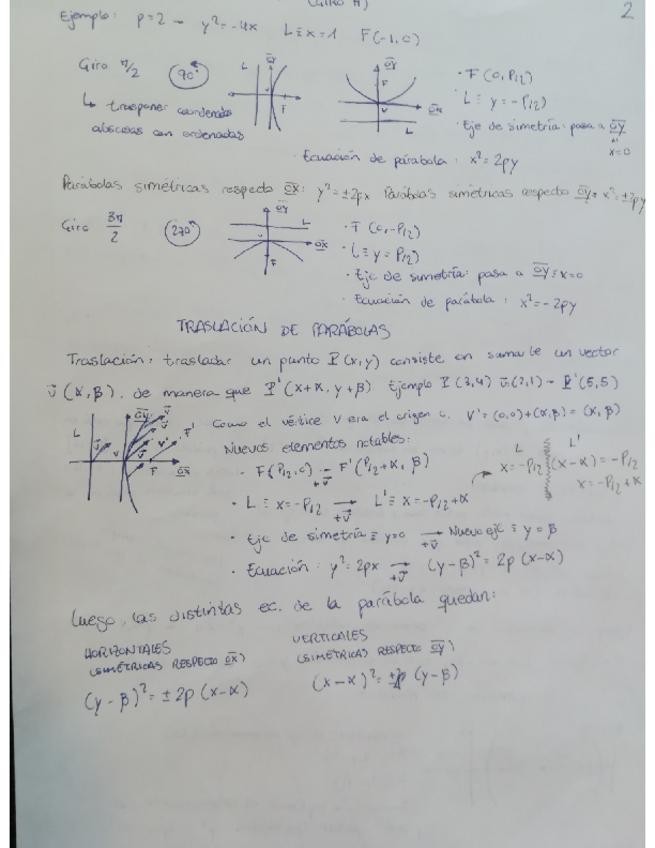 (GIRO π)
2
Ejemplo: p=2 → y²=-4x L≡x=1 F(-1,0)
Giro π/2 (90°)
↳ trasponer coordenadas
abscisas con ordenadas
L V F OY
OY F V OX L
· F(0, P/2)
· L≡ y=-P/2)
· Eje de simetría: pasa a OY
x=0
· Ecuación de parábola: x²=2py
Parábolas simétricas respecto OX: y²=±2px Parábolas simétricas respecto OY: x²=±2py
Giro 3π/2 (270°)
OY L V OX F
· F (0,-P/2)
· L≡ y=P/2)
· Eje de simetría: pasa a OY≡x=0
· Ecuación de parábola: x²=-2py
TRASLACIÓN DE PARÁBOLAS
Traslación: trasladar un punto P(x,y) consiste en sumarle un vector
v(α,β), de manera que P'(x+α, y+β) Ejemplo P(3,4) v(2,1) → P'(5,5)
L v V OY v V' F' F OX
Como el vértice V era el origen V'=(0,0)+(α,β)=(α,β)
Nuevos elementos notables:
· F(P/2,0) →+v F'(P/2+α, β)
· L≡ x=-P/2 →+v L'≡ x=-P/2+α
L L'
x=-P/2 (x-α)=-P/2
x=-P/2+α
· Eje de simetría≡ y=0 →+v Nuevo eje≡ y=β
· Ecuación: y²=2px →+v (y-β)²=2p(x-α)
Luego, las distintas ec. de la parábola quedan:
HORIZONTALES
(SIMÉTRICAS RESPECTO OX)
(y-β)²=±2p(x-α)
VERTICALES
(SIMÉTRICAS RESPECTO OY)
(x-α)²=±2p(y-β)